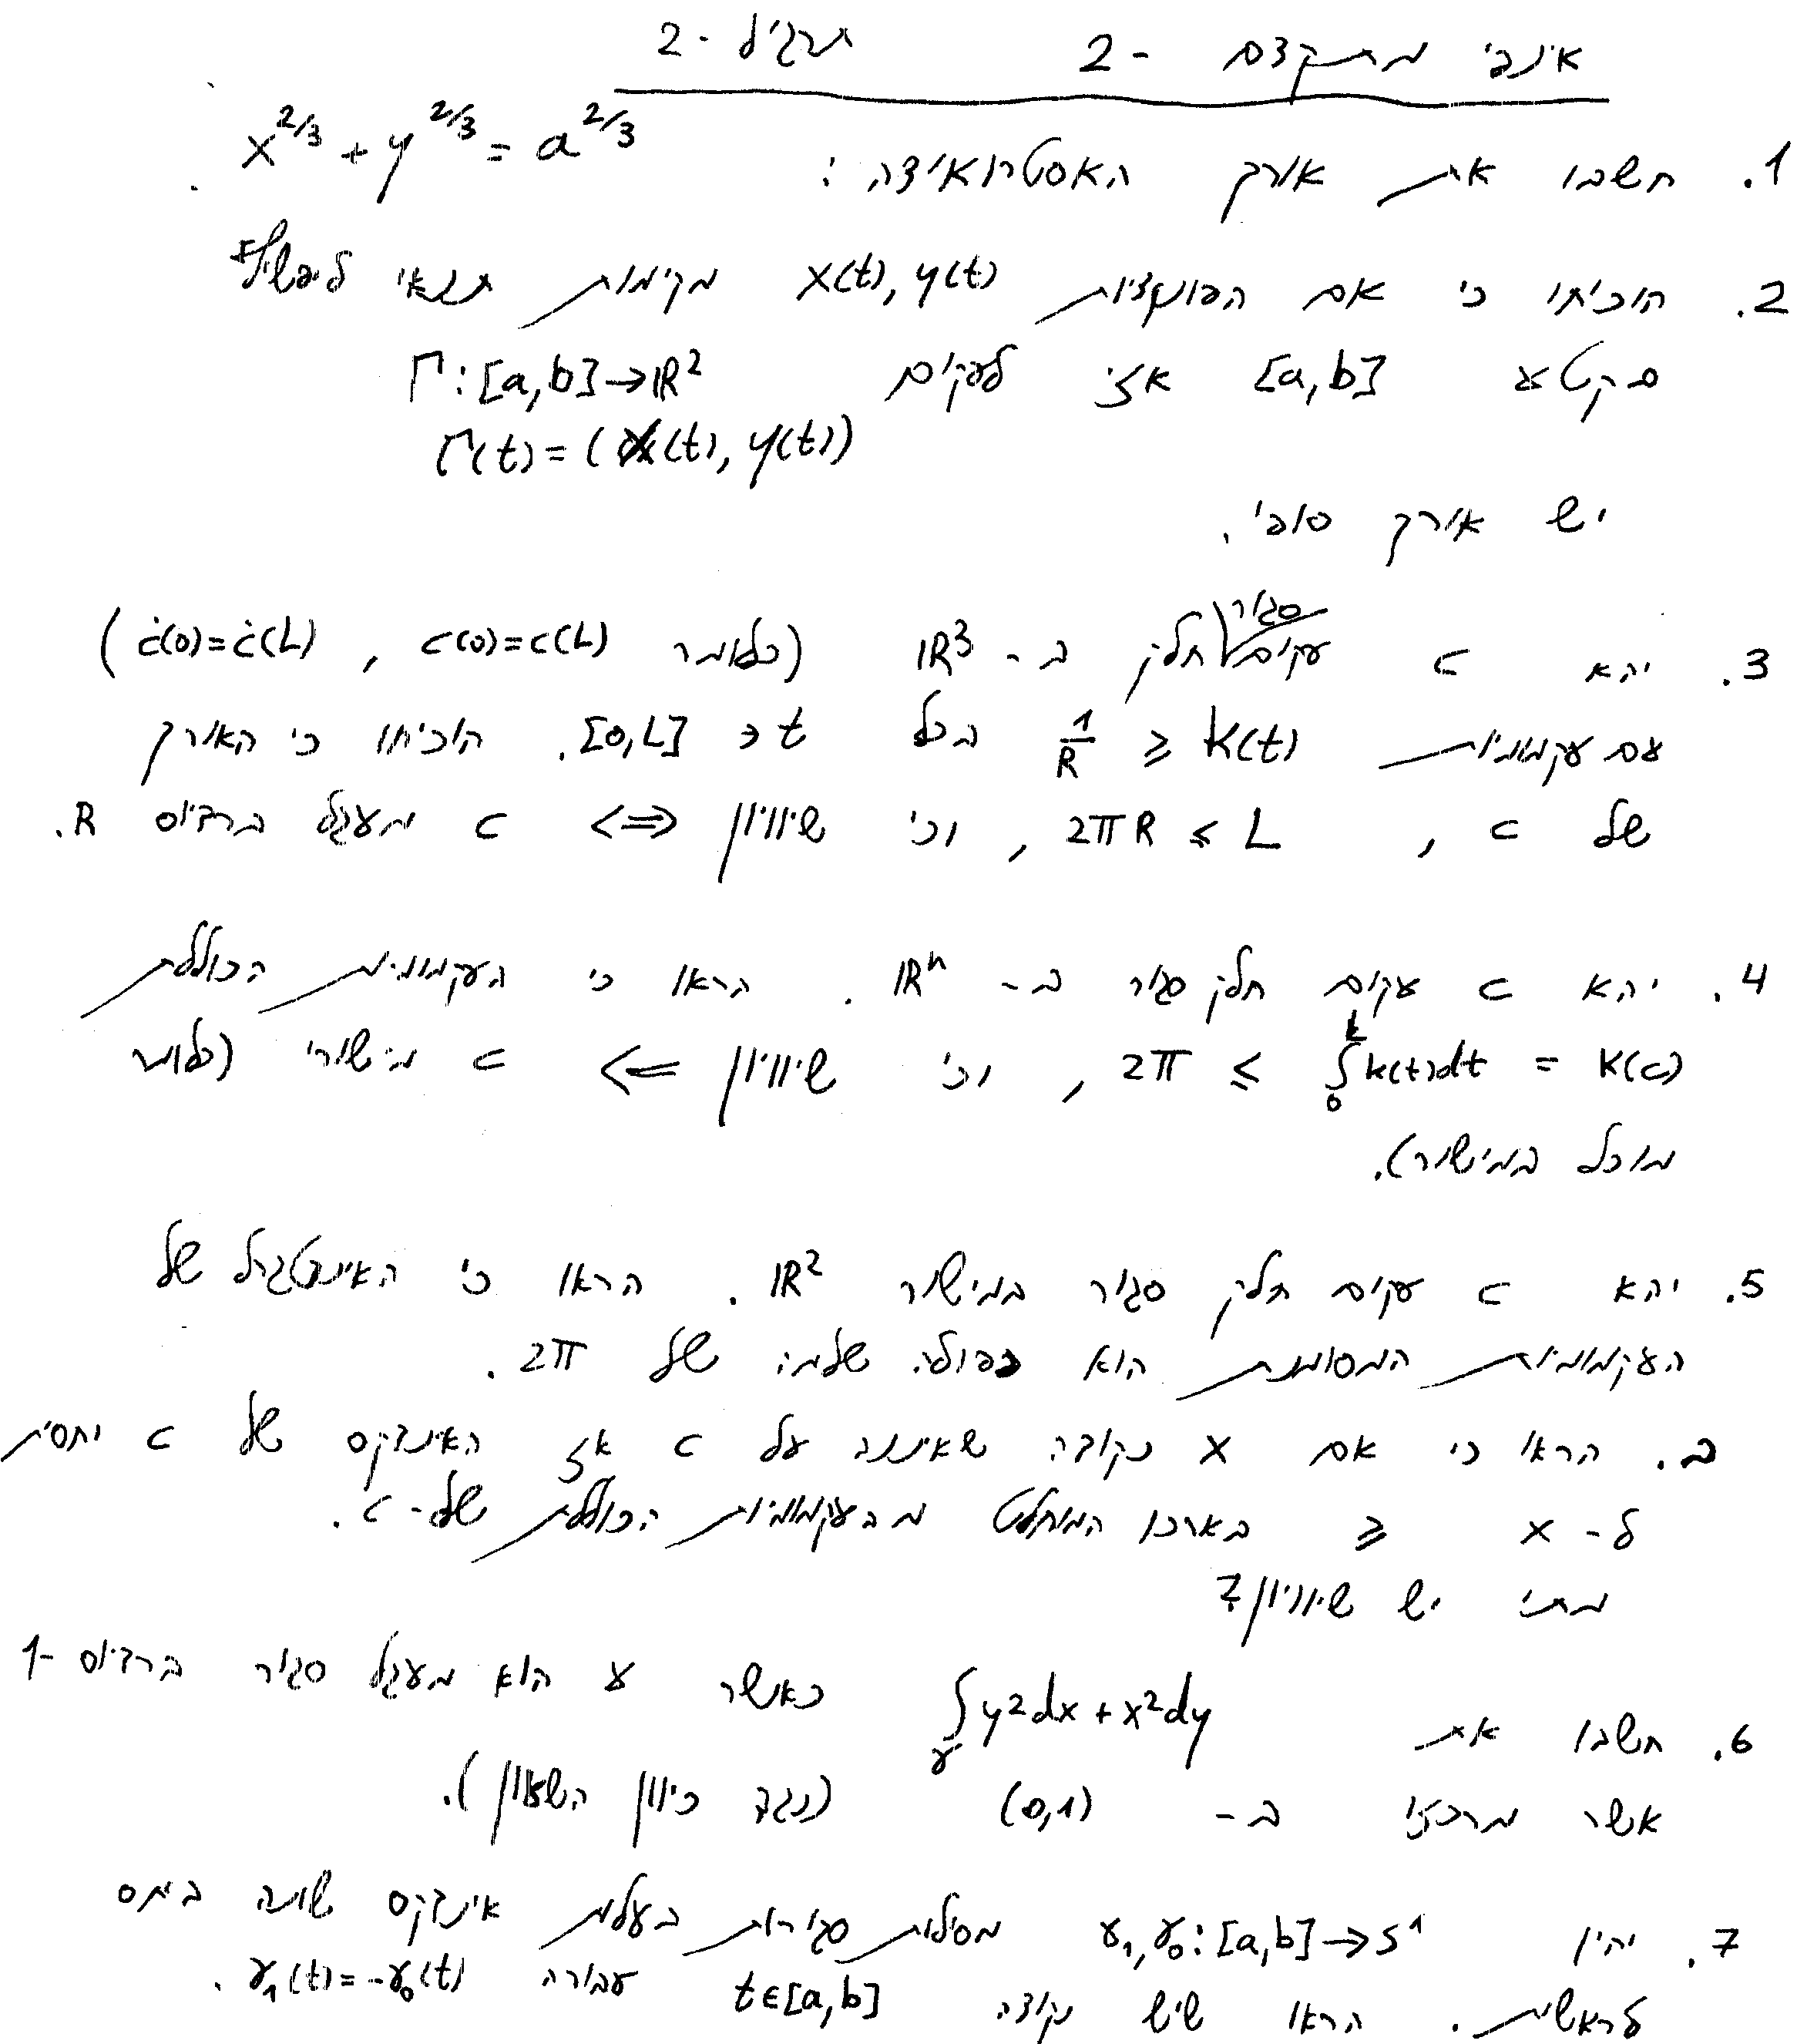 אינפי מתקדם - 2 תרגיל - 2
1. חשבו את אורך האסטרואידה: x^{2/3} + y^{2/3} = a^{2/3}.
2. הוכיחו כי אם הפונקציות x(t), y(t) מקימות תנאי ליפשיץ
בקטע [a,b] אזי לעקום Γ:[a,b]→ℝ²
Γ(t) = (x(t), y(t))
יש אורך סופי.
3. יהא c עקום סגור חלק ב- ℝ³ (כלומר c(0)=c(L), ċ(0)=ċ(L))
עם עקמומיות k(t) ≤ 1/R בכל t ∈ [0,L]. הוכיחו כי האורך
של c, L ≥ 2πR, וכי שיוויון <=> c מעגל ברדיוס R.
4. יהא c עקום חלק סגור ב- ℝⁿ. הראו כי העקמומיות הכוללת
K(c) = ∫₀ᴸ k(t)dt ≥ 2π, וכי שיוויון <= c מישורי (כלומר
מוכל במישור).
5. יהא c עקום חלק סגור במישור ℝ². הראו כי האינטגרל של
העקמומיות המסומנת הוא כפולה שלמה של 2π.
ב. הראו כי אם x נקודה שאיננה על c אז האינדקס של c יחסית
ל- x ≤ בערכו המוחלט מהעקמומיות הכוללת של - c.
מתי יש שיוויון?
6. חשבו את ∫_γ y²dx + x²dy כאשר γ הוא מעגל סגור ברדיוס - 1
אשר מרכזו ב- (0,1) (נגד כיוון השעון).
7. יהיו γ₁,γ₀:[a,b]→S¹ מסילות סגורות בעלות אינדקס שונה ביחס
לראשית. הראו שיש נקודה t∈[a,b] עבורה γ₁(t)=-γ₀(t).